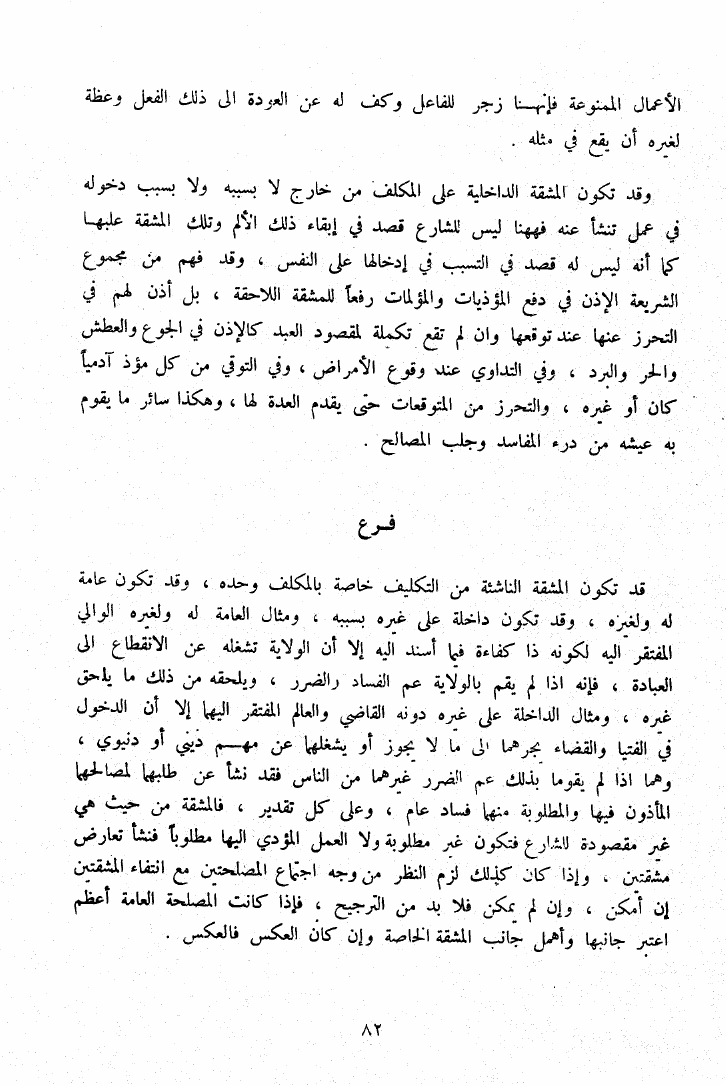 الأعمال الممنوعة فإنهـنا زجر للفاعل وكف له عن العودة الى ذلك الفعل وعظة
لغيره أن يقع في مثله .
وقد تكون المشقة الداخلية على المكلف من خارج لا بسببه ولا بسبب دخوله
في عمل تنشأ عنه فههنا ليس للشارع قصد في إبقاء ذلك الألم وتلك المشقة عليهـا
كما أنه ليس له قصد في التسبب في إدخالها على النفس ، وقد فهم من مجموع
الشريعة الإذن في دفع المؤذيات والمؤلمات رفعاً للمشقة اللاحقة ، بل أذن لهم في
التحرز عنها عند توقعها وان لم تقع تكملة لمقصود العبد كالإذن في الجوع والعطش
والحر والبرد ، وفي التداوي عند وقوع الأمراض ، وفي التوقي من كل مؤذ آدمياً
كان أو غيره ، والتحرز من المتوقعات حتى يقدم العدة لها ، وهكذا سائر ما يقوم
به عيشه من درء المفاسد وجلب المصالح .
فـرع
قد تكون المشقة الناشئة من التكليف خاصة بالمكلف وحده ، وقد تكون عامة
له ولغيره ، وقد تكون داخلة على غيره بسببه ، ومثال العامة له ولغيره الوالي
المفتقر اليه لكونه ذا كفاءة فيما أسند اليه إلا أن الولاية تشغله عن الانقطاع الى
العبادة ، فإنه اذا لم يقم بالولاية عم الفساد والضرر ، ويلحقه من ذلك ما يلحق
غيره ، ومثال الداخلة على غيره دونه القاضي والعالم المفتقر اليهما إلا أن الدخول
في الفتيا والقضاء يجرهما الى ما لا يجوز أو يشغلهما عن مهـم ديني أو دنيوي ،
وهما اذا لم يقوما بذلك عم الضرر غيرهما من الناس فقد نشأ عن طلبهما لمصالحهما
المأذون فيها والمطلوبة منهما فساد عام ، وعلى كل تقدير ، فالمشقة من حيث هي
غير مقصودة للشارع فتكون غير مطلوبة ولا العمل المؤدي اليها مطلوباً فنشأ تعارض
مشقتين ، وإذا كان كذلك لزم النظر من وجه اجتماع المصلحتين مع انتفاء المشقتين
إن أمكن ، وإن لم يمكن فلا بد من الترجيح ، فإذا كانت المصلحة العامة أعظم
اعتبر جانبها وأهمل جانب المشقة الخاصة وإن كان العكس فالعكس .
٨٢